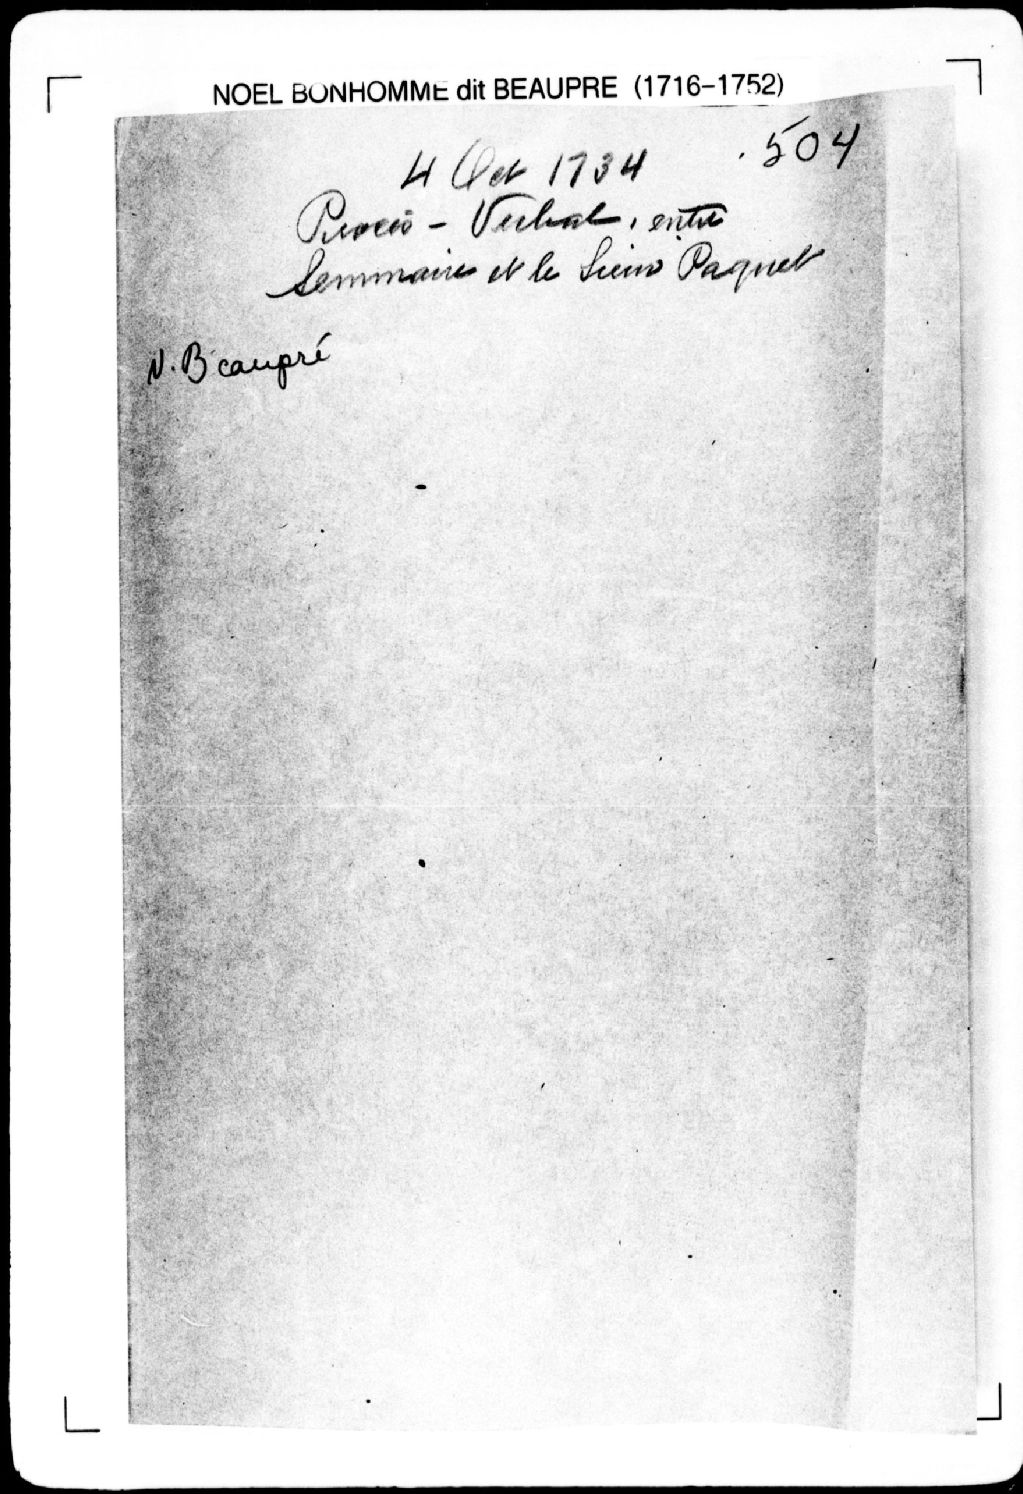 NOEL BONHOMME dit BEAUPRE (1716-1752)
504
4 Oct 1734
Procès - Verbal, entre
Seminaire et le Sieur Paquet
N. Beaupré